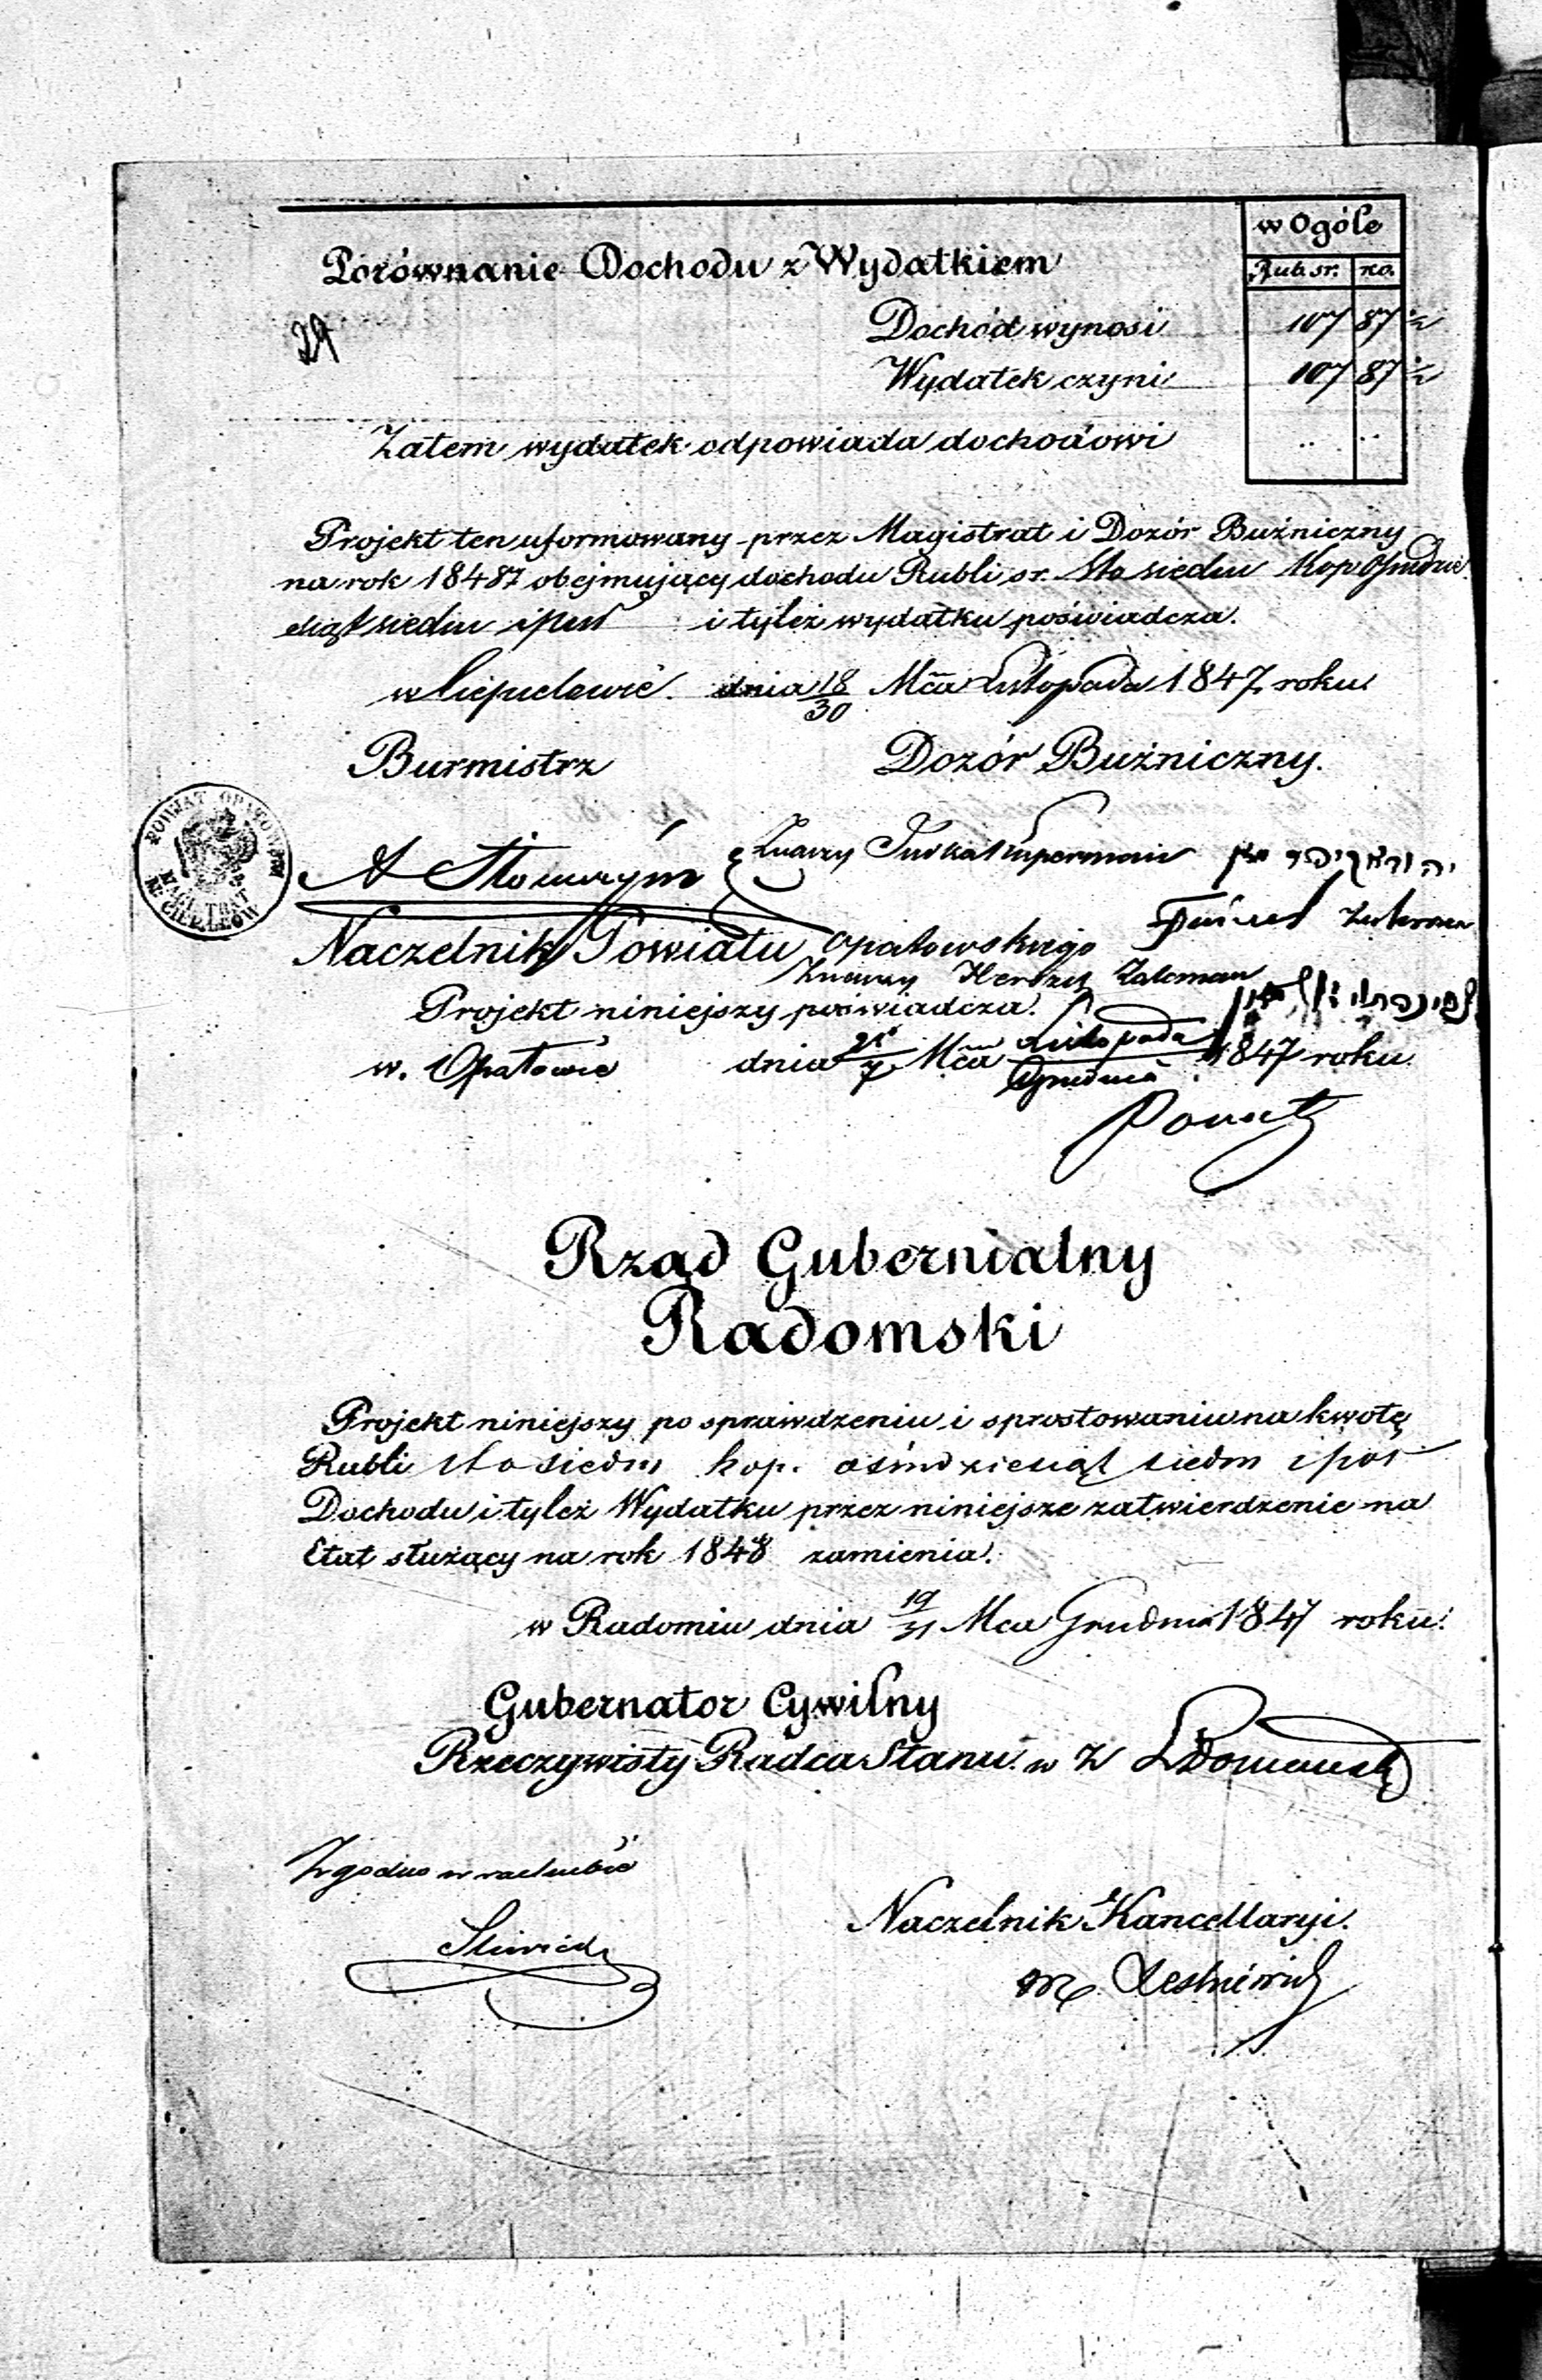 w Ogóle
Porównanie Dochodu z Wydatkiem
Rub. sr. ko.
29
Dochód wynosi 107 87 ½
Wydatek czyni 107 87 ½
Zatem wydatek odpowiada dochodowi
Projekt ten uformowany przez Magistrat i Dozór Bużniczny
na rok 1848 obejmujący dochodu Rubli sr. Sto siedm Kop Ośmdzie
siąt siedm i puł i tyleż wydatku poświadcza.
w Ciepielowie. dnia 18/30 Mca Listopada 1847 roku.
Burmistrz Dozór Bużniczny.
POWIAT OPATOWSKI
MAGISTRAT
M. CIEPIELÓW
Judka Kuperman
Naczelnik Powiatu Opatowskiego
Herszek Zalcman
Projekt niniejszy poświadcza.
w. Opatowie dnia 25/7 Mca Listopada/Grudnia 1847 roku.
Rząd Gubernialny
Radomski
Projekt niniejszy po sprawdzeniu i sprostowaniu na kwotę
Rubli sto siedm kop. ośmdziesiąt siedm i pół
Dochodu i tyleż Wydatku przez niniejsze zatwierdzenie na
Etat służący na rok 1848 zamienia.
w Radomiu dnia 19/31 Mca Grudnia 1847 roku.
Gubernator Cywilny
Rzeczywisty Radca Stanu. w Z
Zgodno w rachubie
Naczelnik Kancellaryi.